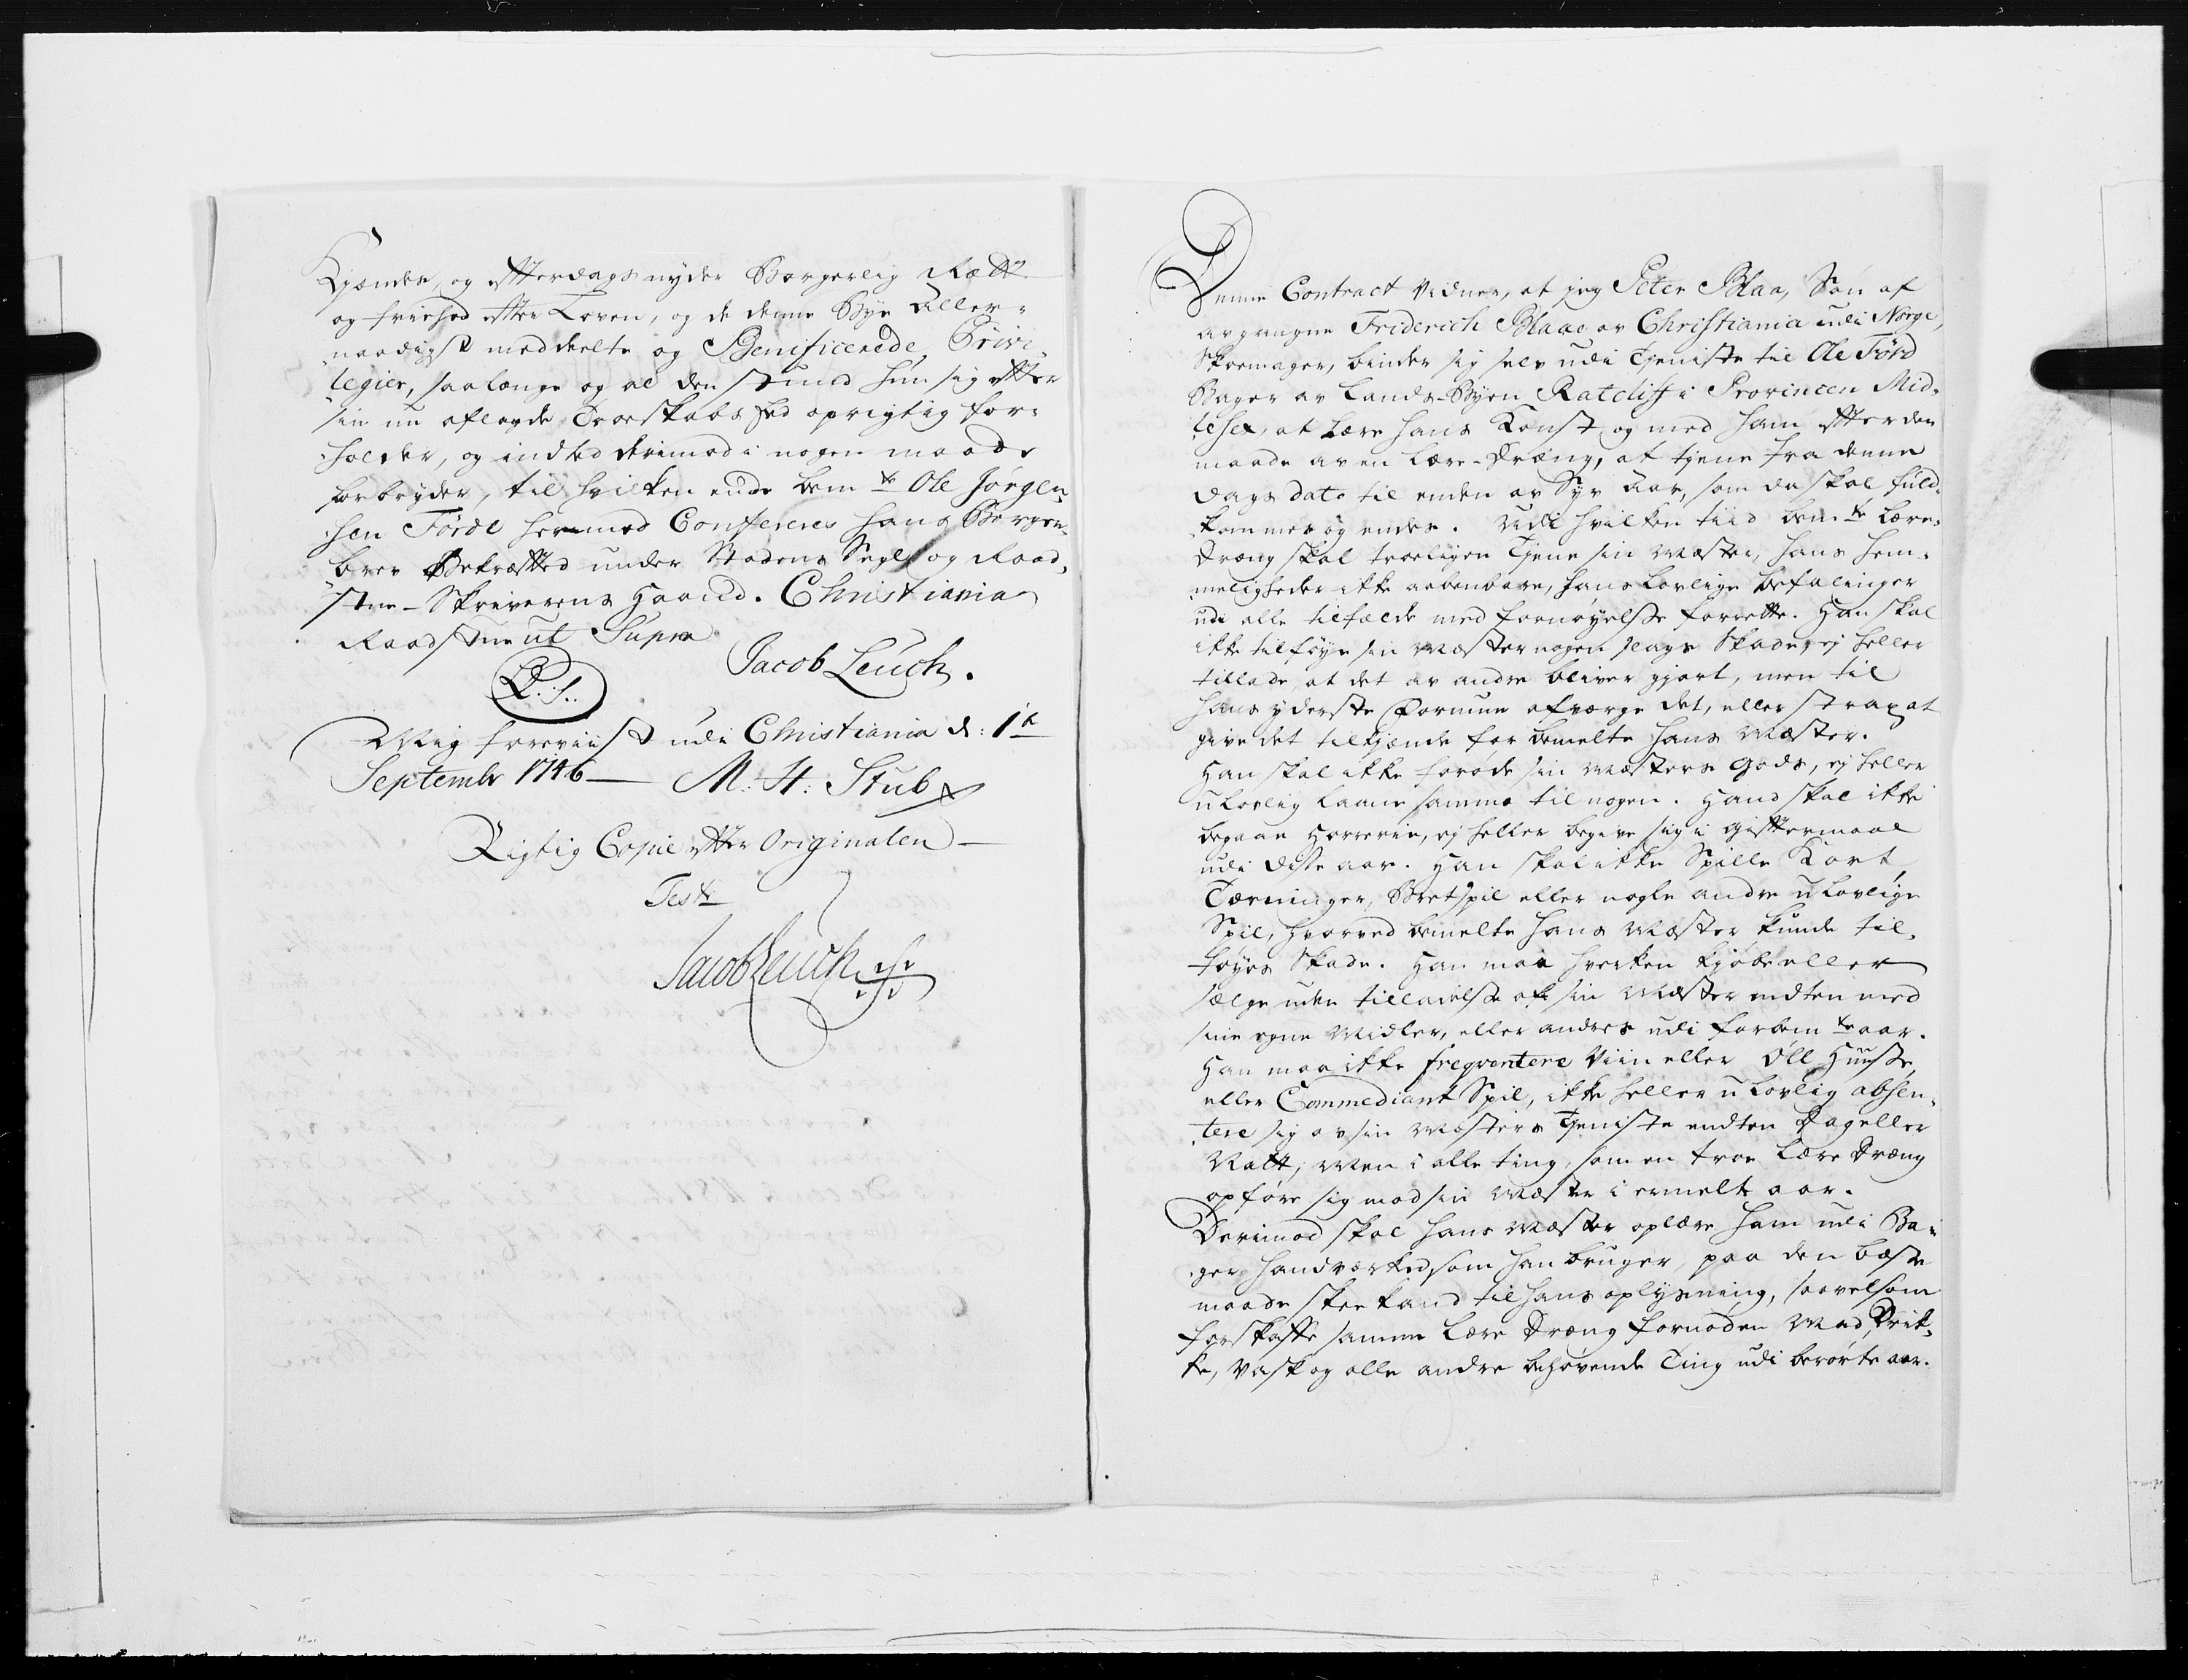 Kiender, og effterdags nyder Borgerlig Rætt
og friehed efter Loven, og de denne Bye Aller-
naadigst meddeelte og Benificerede Privi-
legier, saalænge og al den stund hun sig efter
sin nu aflagde Troeskabs Eed oprigtig for-
holder, og indted derimod i nogen maade
forbryder, til hvilken ende bem.te Ole Jørgen-
sen Förde hermed Confereres hans Borger-
brev Bekræfted under Stadens Segl og Raad-
stue-Skriverens Haand. Christiania
Raadstue ut Supra
L.S. Jacob Leuch.
Mig foreviist udi Christiania d: 1te
Septembr 1746 — M: H: Stub
Rigtig Copie efter Originalen —
Test:
Jacob Leuch
Denne Contract vidner, at jeg Peter Blaa, Søn af
avgangne Friderich Blaae av Christiania udi Norge,
Skoemager, binder sig selv udi Tjeniste til Ole Förd
Bager av Lands-Byen Ratcliff i Provincen Mid-
lesex, at lære hans Konst, og med ham effter den
maade av en Lære-Dræng, at tjene fra denne
Dags dato til enden av Syv Aar, som da skal fuld-
kommes og endes. Udi hvilken tiid bem.te Lære-
Dræng skal troeligen tjene sin Mæster, hans hem-
meligheder ikke aabenbare, hans lovlige befalinger
udi alle tilfælde med fornøyelse forrette. Han skal
ikke tilføye sin Mæster nogen slags Skade, ej heller
tillade, at det av andre bliver gjort, men til
hans yderste Formue afværge det, eller strax at
give det tilkjende for bemelte hans Mæster.
Han skal ikke forøde sin Mæsters Gods, ej heller
ulovlig laane samme til nogen. Hand skal ikke
begaae Horrerie, ej heller begive sig i Gifftermaal
udi disse aar. Han skal ikke Spille Kort,
Tærninger, Bretspil eller nogle andre ulovlige
Spil, hvorved bemelte hans Mæster kunde til-
føyes Skade. Han maa hverken kjøbe eller
sælge uden tilladelse af sin Mæster endten med
sine egne Midler, eller andres udi forbem.te aar.
Han maa ikke freqventere Viin eller Öll Huuse,
eller Commediant Spil, ikke heller ulovlig absen-
tere sig av sin Mæsters Tjeniste endten Dag eller
Natt; Men i alle ting, som en troe Lære Dræng
opføre sig mod sin Mæster i ermelte aar.
Derimod skal hans Mæster oplære ham udi Ba-
ger Handværked, som han bruger, paa den bæste
maade skee kand til hans oplysning, saavelsom
forskaffe samme Lære Dræng fornøden Mad, Drik-
ke, Vask og alle andre behøvende Ting udi berørte aar.